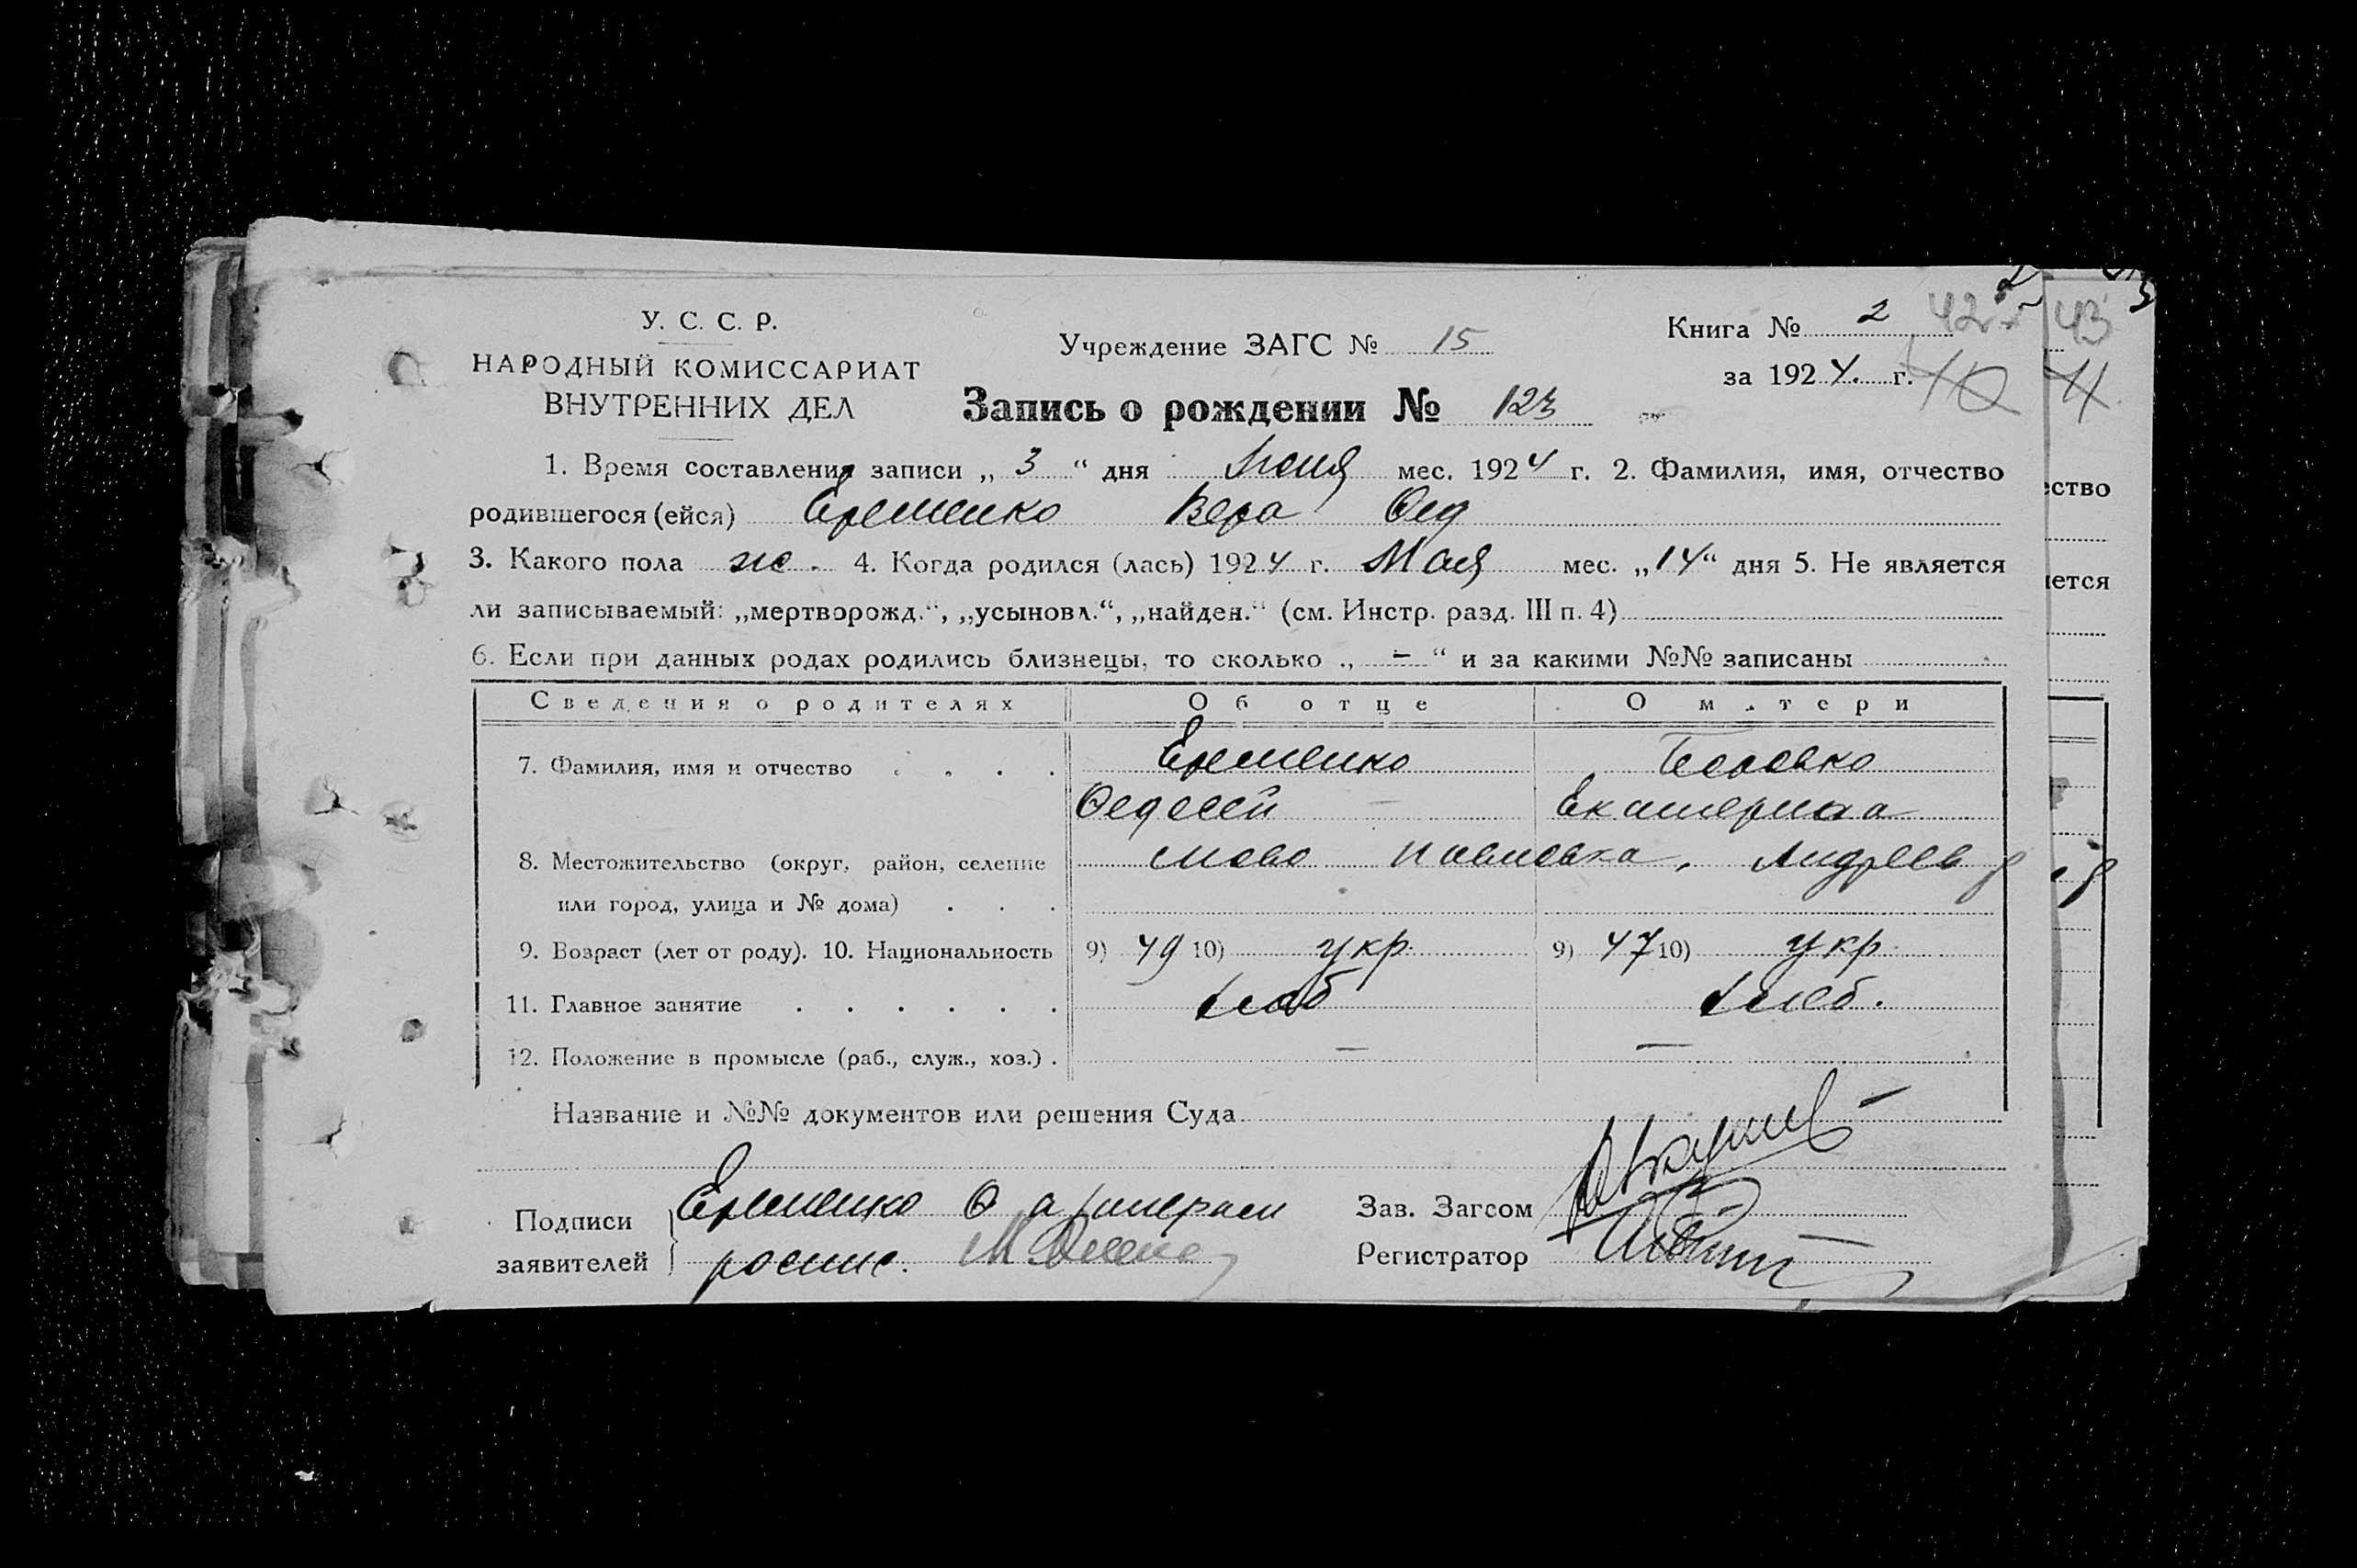 У. С. С. Р.
НАРОДНЫЙ КОМИССАРИАТ
ВНУТРЕННИХ ДЕЛ
Учреждение ЗАГС № 15
Книга № 2 42
43
за 1924. г. 40
41
Запись о рождении № 123
1. Время составления записи „ 3 “ дня Июня мес. 1924 г. 2. Фамилия, имя, отчество
родившегося (ейся) Еременко Вера Фед
3. Какого пола же. 4. Когда родился (лась) 1924 г. Мая мес. „14“ дня 5. Не является
ли записываемый: „мертворожд.“, „усыновл.“, „найден.“ (см. Инстр. разд. III п. 4)
6. Если при данных родах родились близнецы, то сколько „ — “ и за какими №№ записаны
Сведения о родителях Об отце О матери
7. Фамилия, имя и отчество . . . . Еременко
Федосей Екатерина
8. Местожительство (округ, район, селение Ново Павловка, Андреев р
или город, улица и № дома) . . .
9. Возраст (лет от роду). 10. Национальность 9) 49 10) укр. 9) 47 10) укр.
11. Главное занятие . . . . . . хлеб хлеб.
12. Положение в промысле (раб., служ., хоз.) . — —
Название и №№ документов или решения Суда
Подписи заявителей Еременко Ф а
Зав. Загсом
Регистратор
ство
ется